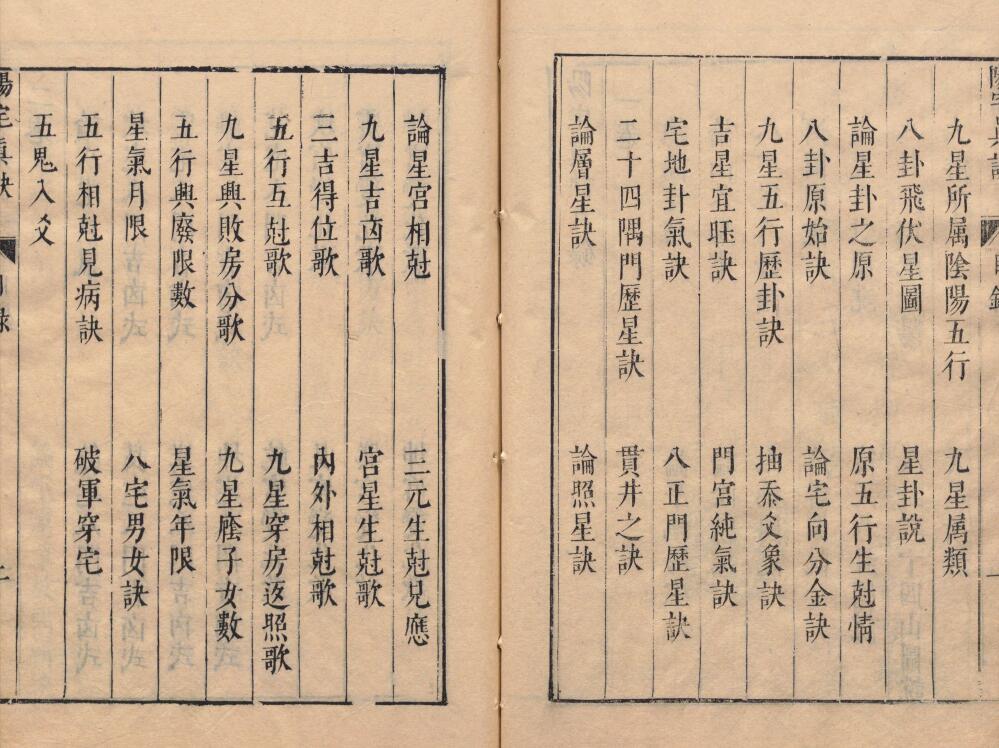 九星所属陰陽五行　九星属類
八卦飛伏星圖　星卦說
論星卦之原　原五行生尅情
八卦原始訣　論宅向分金訣
九星五行歷卦訣　抽爻象訣
吉星宜䀮訣　門宮純氣訣
宅地卦氣訣　八正門歷星訣
二十四隅門歷星訣　貫井之訣
論層星訣　論照星訣
論星宮相尅　三元生尅見應
九星吉凶歌　宮星生尅歌
三吉得位歌　內外相尅歌
五行互尅歌　九星穿房返照歌
九星興敗房分歌　九星廕子女數
五行興廢限數　星氣年限
星氣月限　八宅男女訣
五行相尅見病訣　破軍穿宅
五鬼入爻
陽宅真訣
目錄
二